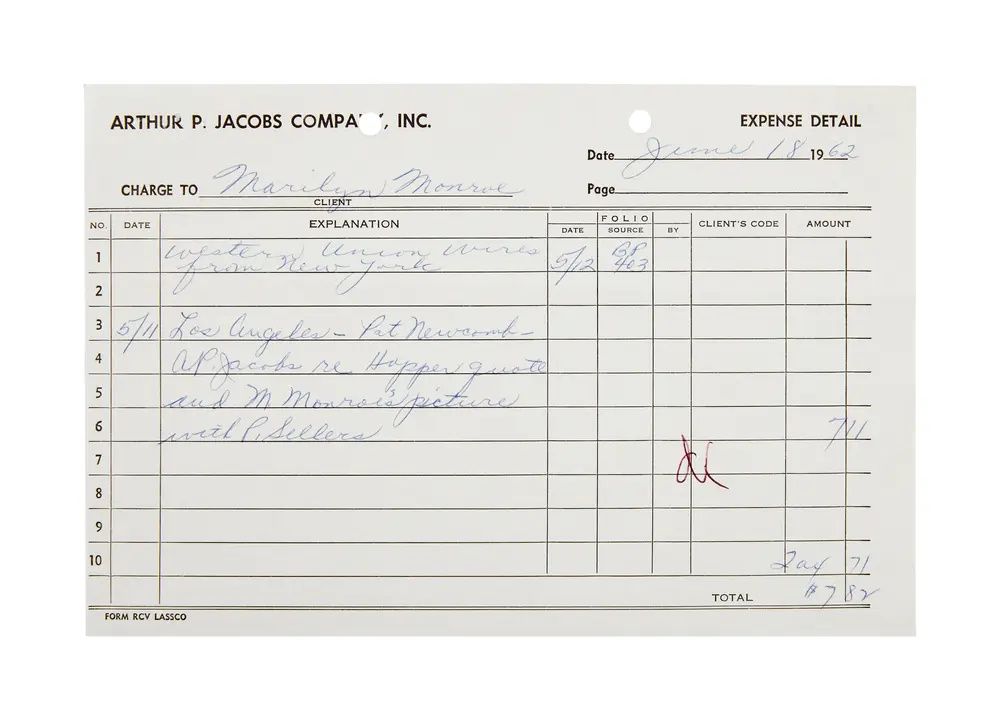 ARTHUR P. JACOBS COMPA Y, INC.
EXPENSE DETAIL
Date June 18 1962
CHARGE TO Marilyn Monroe
Page
CLIENT
NO. DATE EXPLANATION FOLIO CLIENT'S CODE AMOUNT
DATE SOURCE BY
1 Western Union wires BP
from New York 5/12 403
2
3 5/11 Los Angeles - Pat Newcomb -
4 A.P. Jacobs re Hopper quote
5 and M Monroe's picture
6 with P. Sellers 7 11
7
8
9
10 Tax 71
TOTAL $7 82
FORM RCV LASSCO